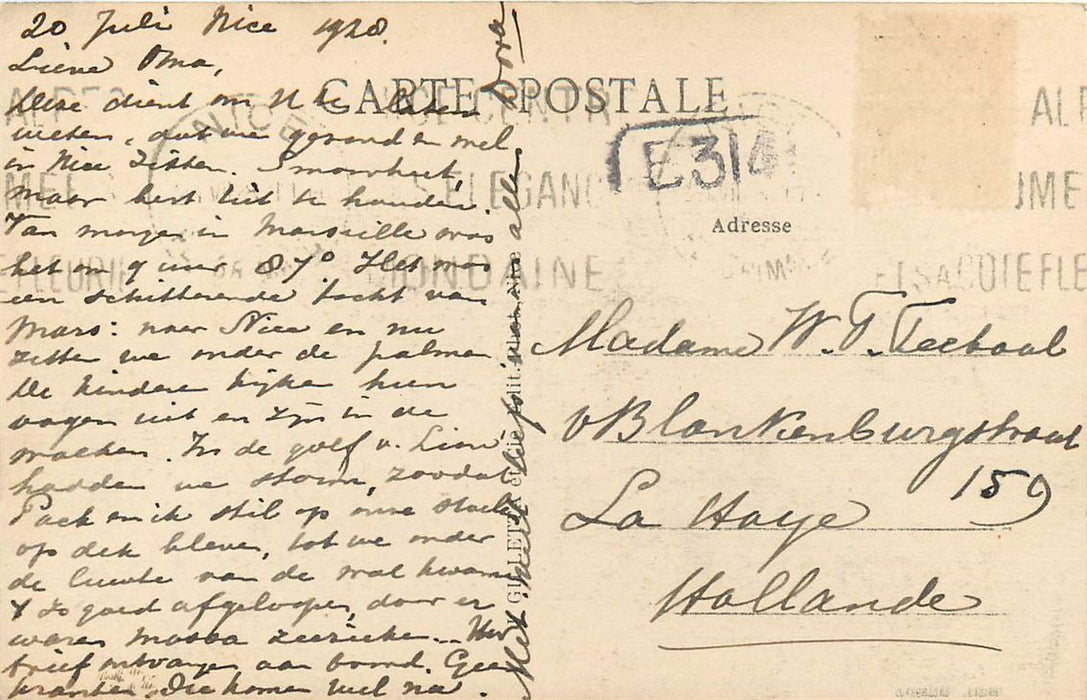 20 Juli Nice 1928.
Lieve Oma,
Deze dient om U te laten
weten, dat we gezond en wel
in Nice zitten. Smoorheet,
maar best uit te houden.
Van morgen in Marseille was
het om 9 uur 87°. Het was
een schitterende tocht van
Mars: naar Nice en nu
zitten we onder de palmen
De kinderen kijken hun
oogen uit en zijn in de
wolken. In de golf v. Lion
hadden we storm, zoodat
Puck en ik stil op onze stoelen
op dek bleven, tot we onder
de luwte van de wal kwamen
't Is goed afgeloopen, door er
waren massa zeezieken. Uw
brief ontvangen aan boord. Geen
kranten. Die komen wel na.
Met alle Dora
CARTE POSTALE
NICE
E314
Adresse
Madame W. F. Teeboal
v Blankenburgstraat
159
La Haye
Hollande
GILLETTA